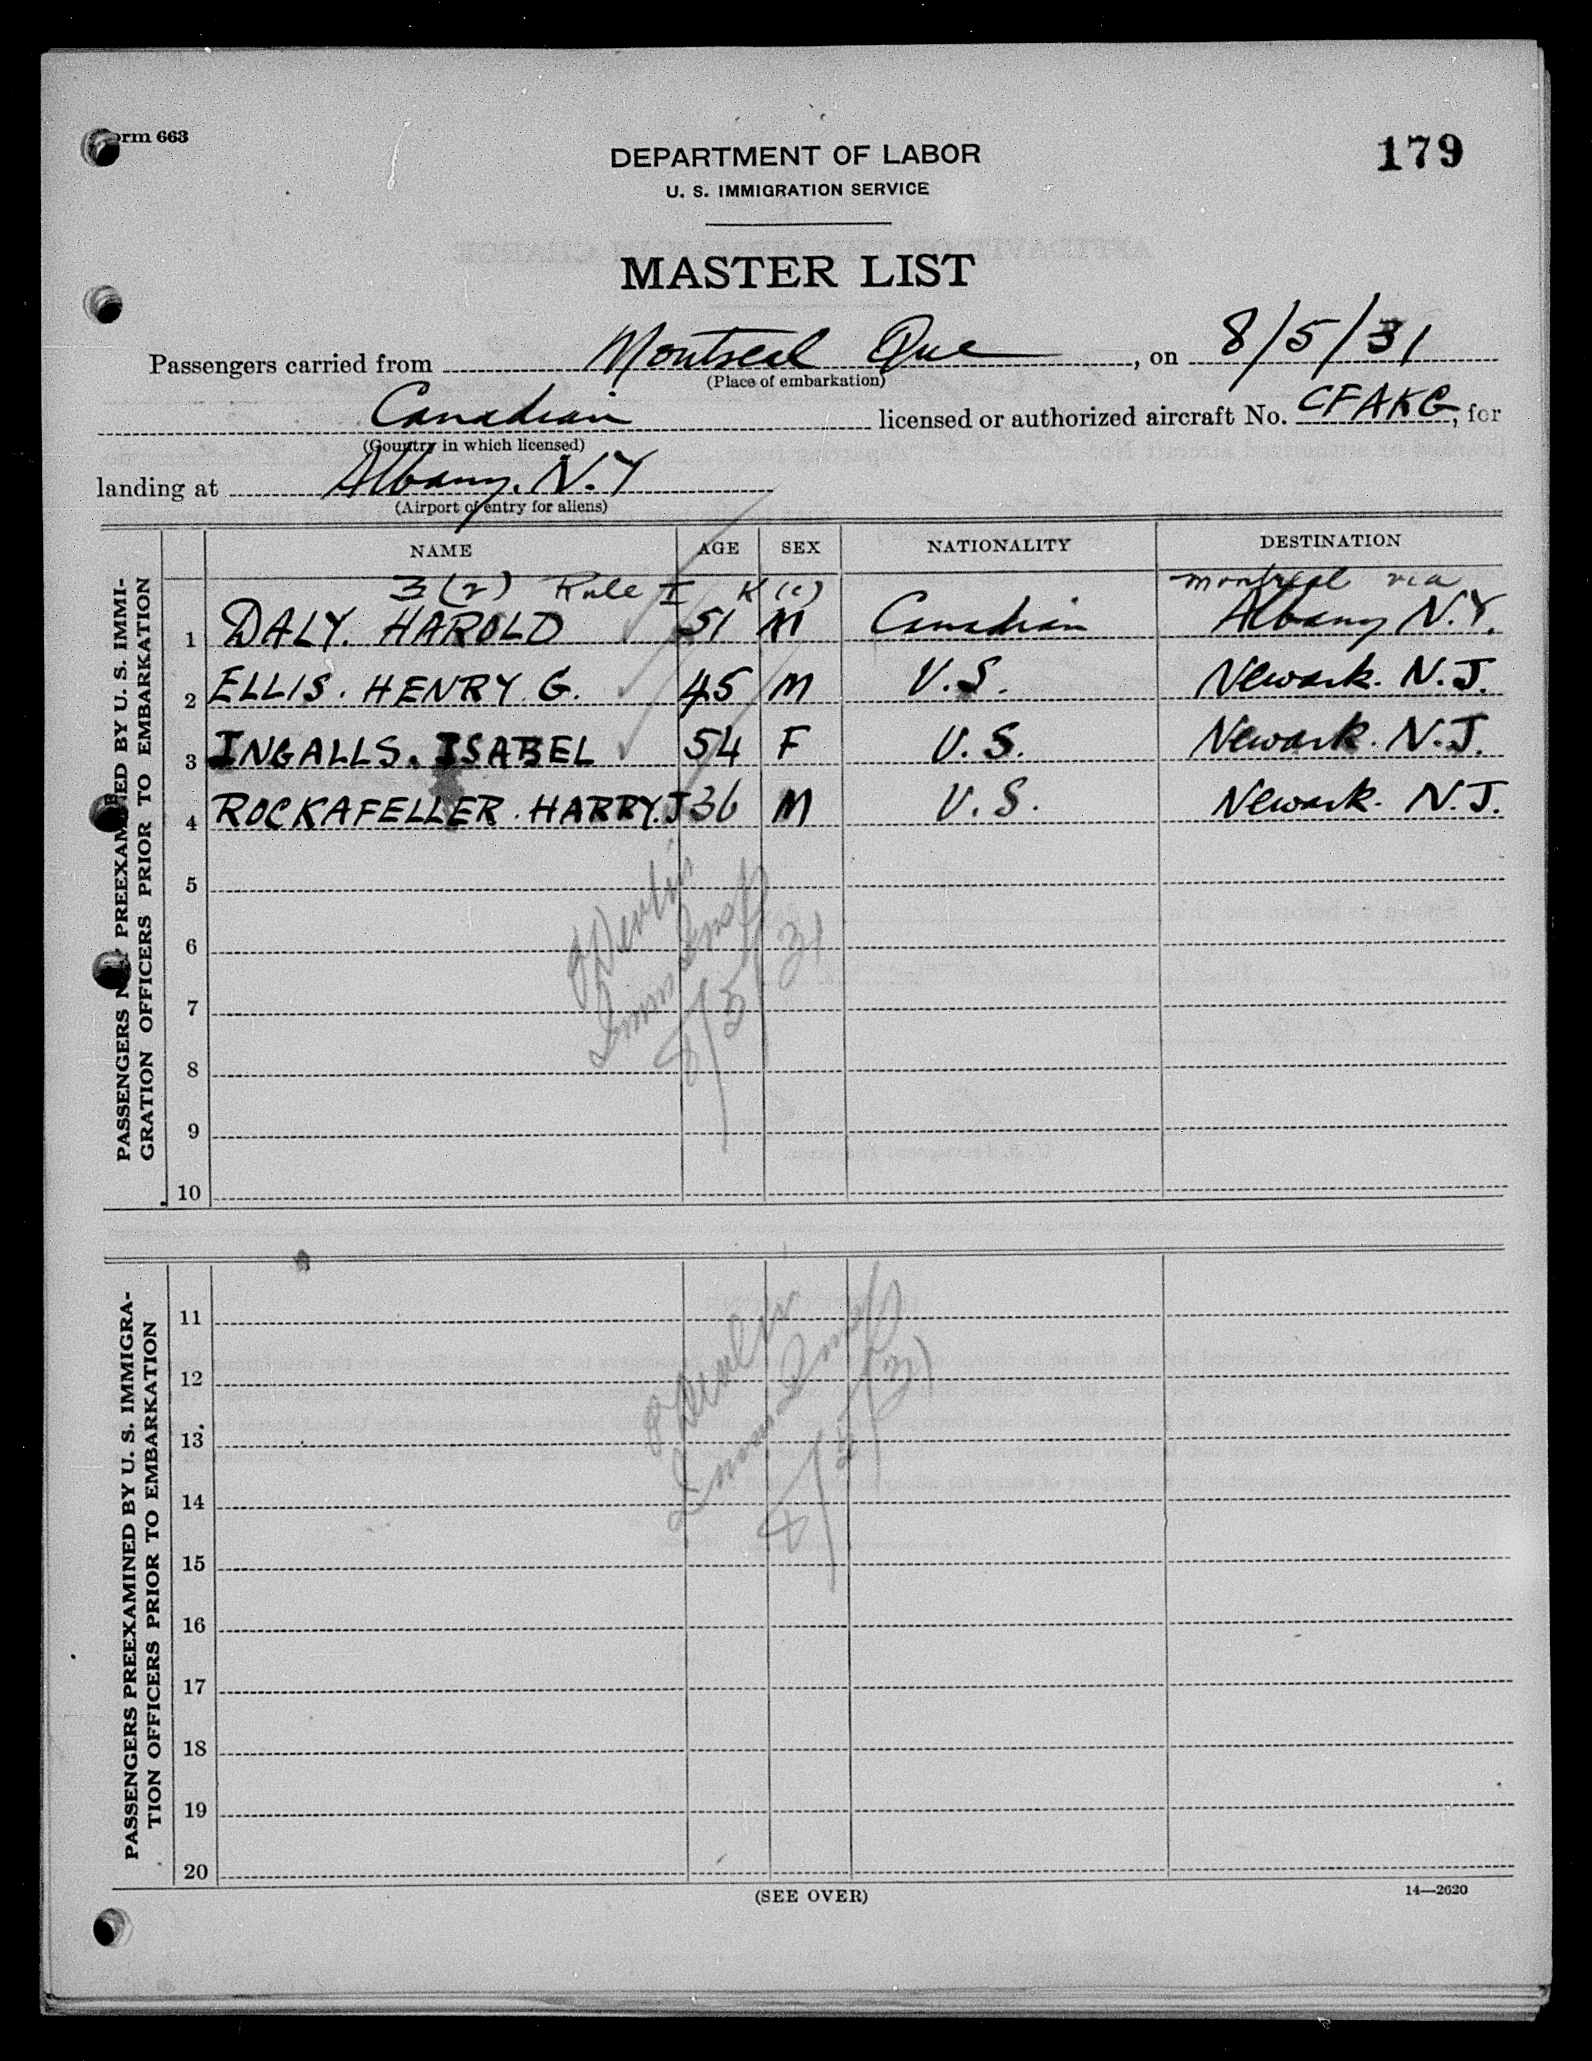 Form 663
179
DEPARTMENT OF LABOR
U. S. IMMIGRATION SERVICE
MASTER LIST
Passengers carried from Montreal Que, on 8/5/31
(Place of embarkation)
Canadian licensed or authorized aircraft No. CFAKG, for
(Country in which licensed)
landing at Albany. N.Y
(Airport of entry for aliens)
NAME AGE SEX NATIONALITY DESTINATION
3(2) Rule I K(c) montreal via
1 DALY. HAROLD 51 M Canadian Albany N.Y.
2 ELLIS. HENRY G. 45 M U.S. Newark. N.J.
3 INGALLS. ISABEL 54 F U.S. Newark. N.J.
4 ROCKAFELLER. HARRY.J 36 M U.S. Newark. N.J.
5
6
7
8
9
10
PASSENGERS NOT PREEXAMINED BY U. S. IMMI-
GRATION OFFICERS PRIOR TO EMBARKATION
8/5/31
11
12
13
14
15
16
17
18
19
20
PASSENGERS PREEXAMINED BY U. S. IMMIGRA-
TION OFFICERS PRIOR TO EMBARKATION
8/5/31
(SEE OVER)
14—2620